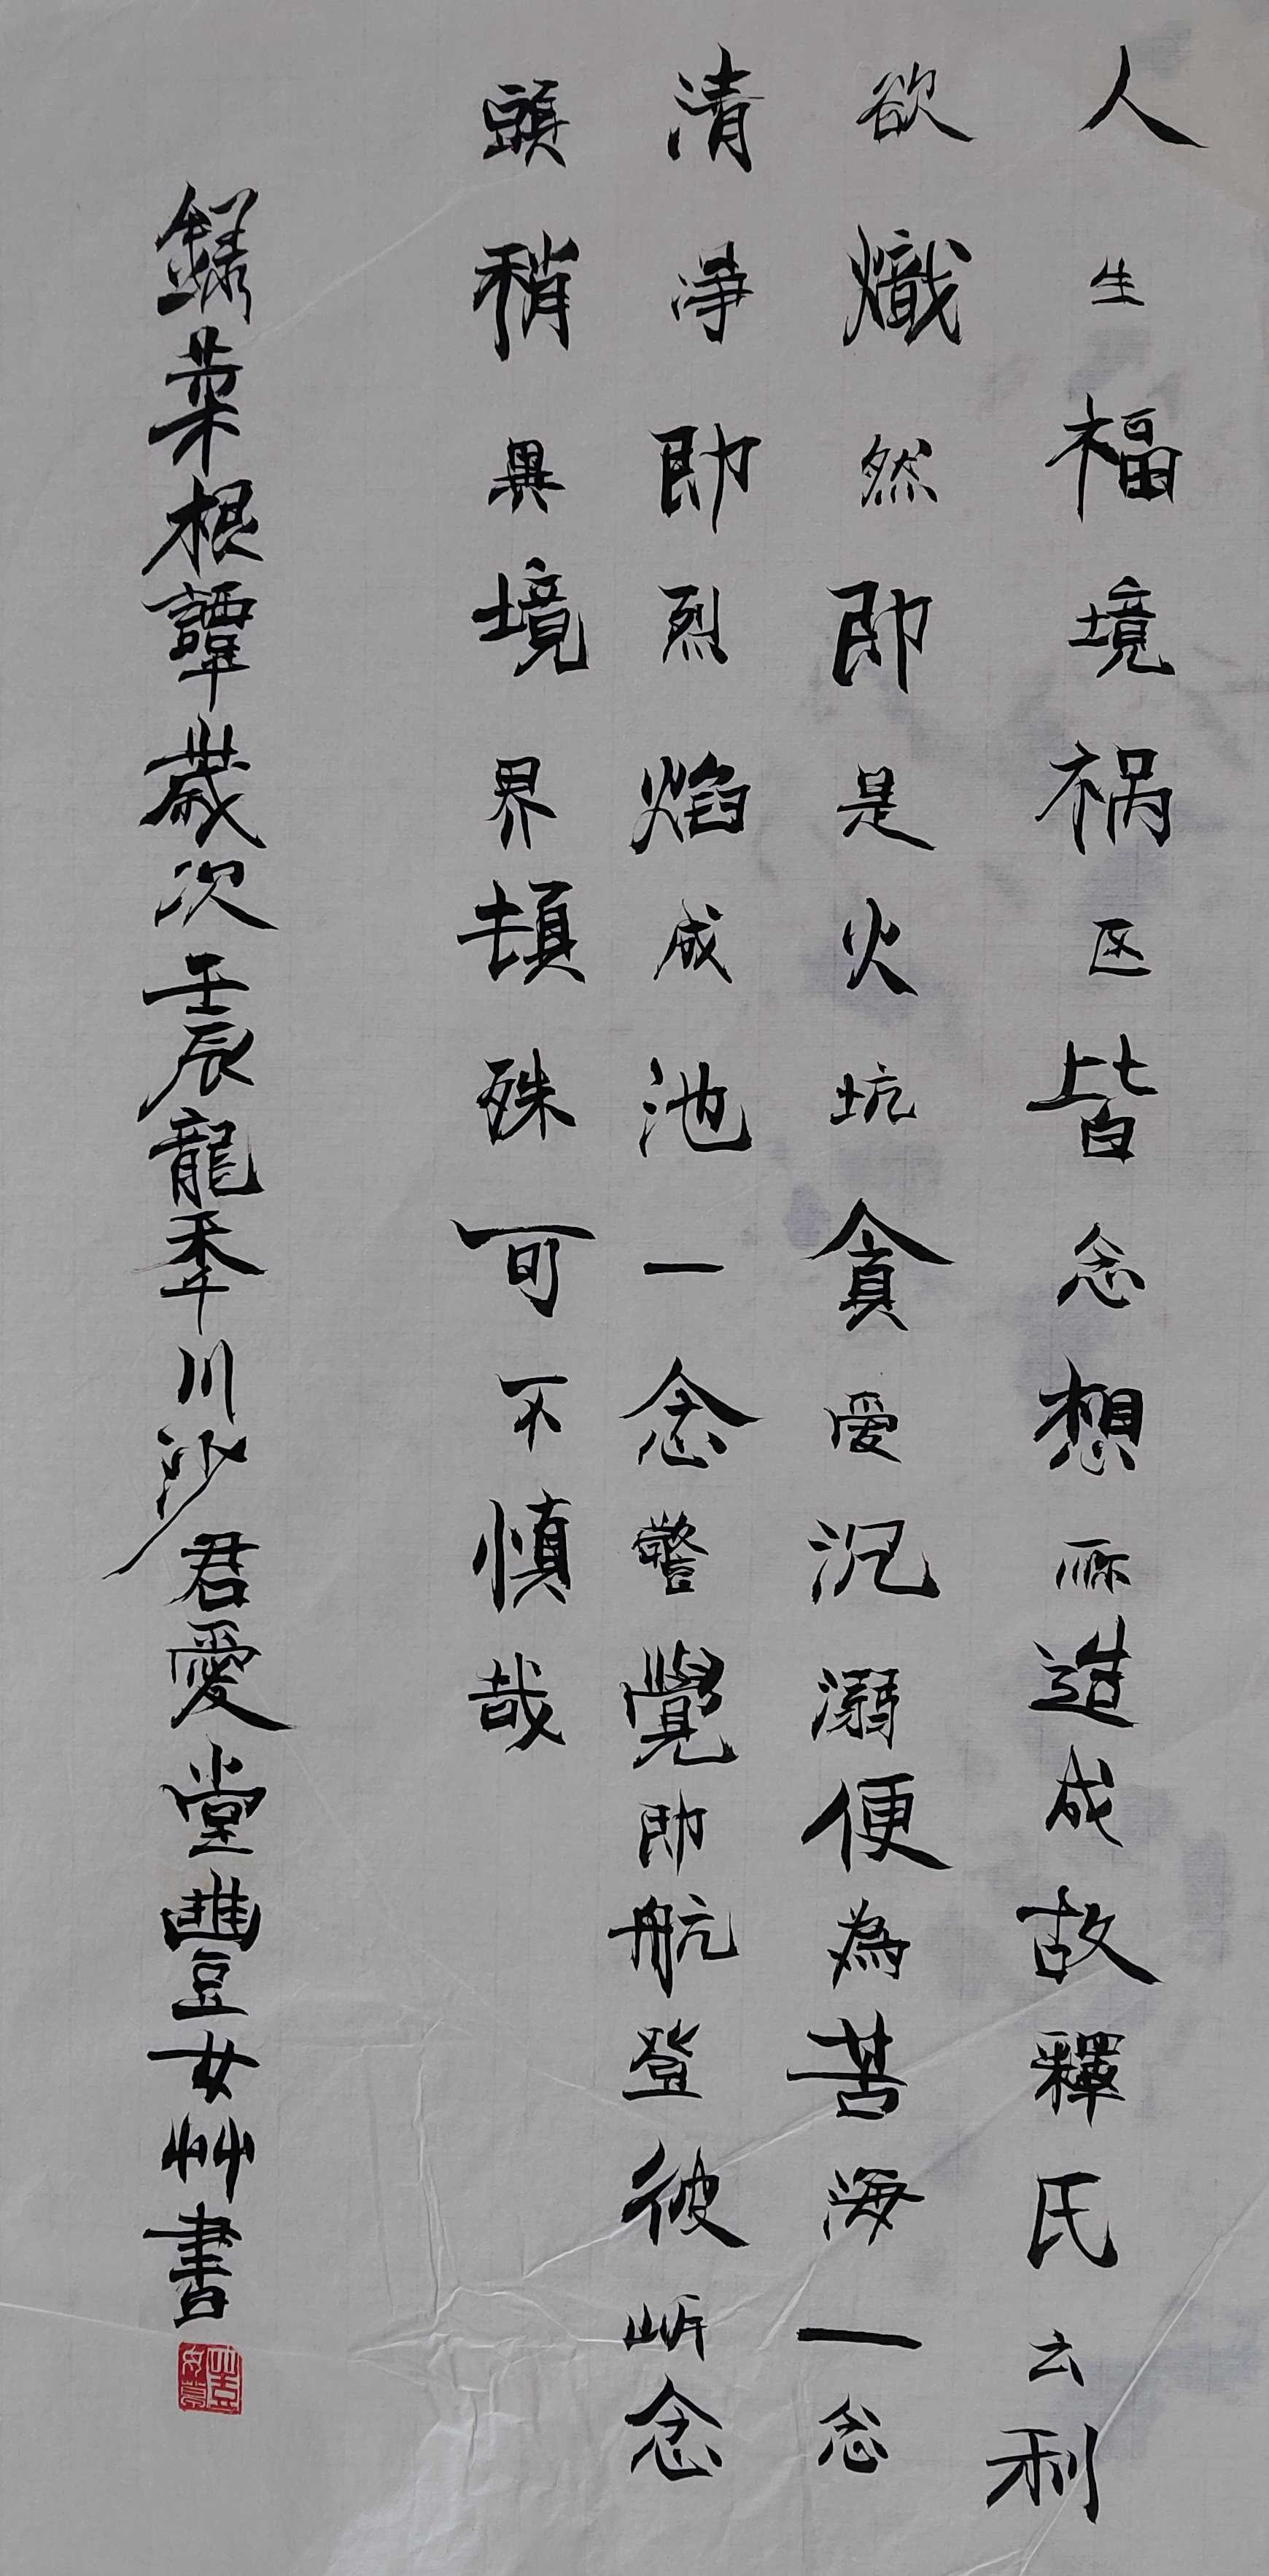 人生福境祸区皆念想所造成故釋氏云利
欲熾然即是火坑貪愛沉溺便為苦海一念
清淨即烈焰成池一念警覺即航登彼岸念
頭稍異境界頓殊可不慎哉
錄菜根譚歲次壬辰龍秊川沙君愛堂豐女艸書